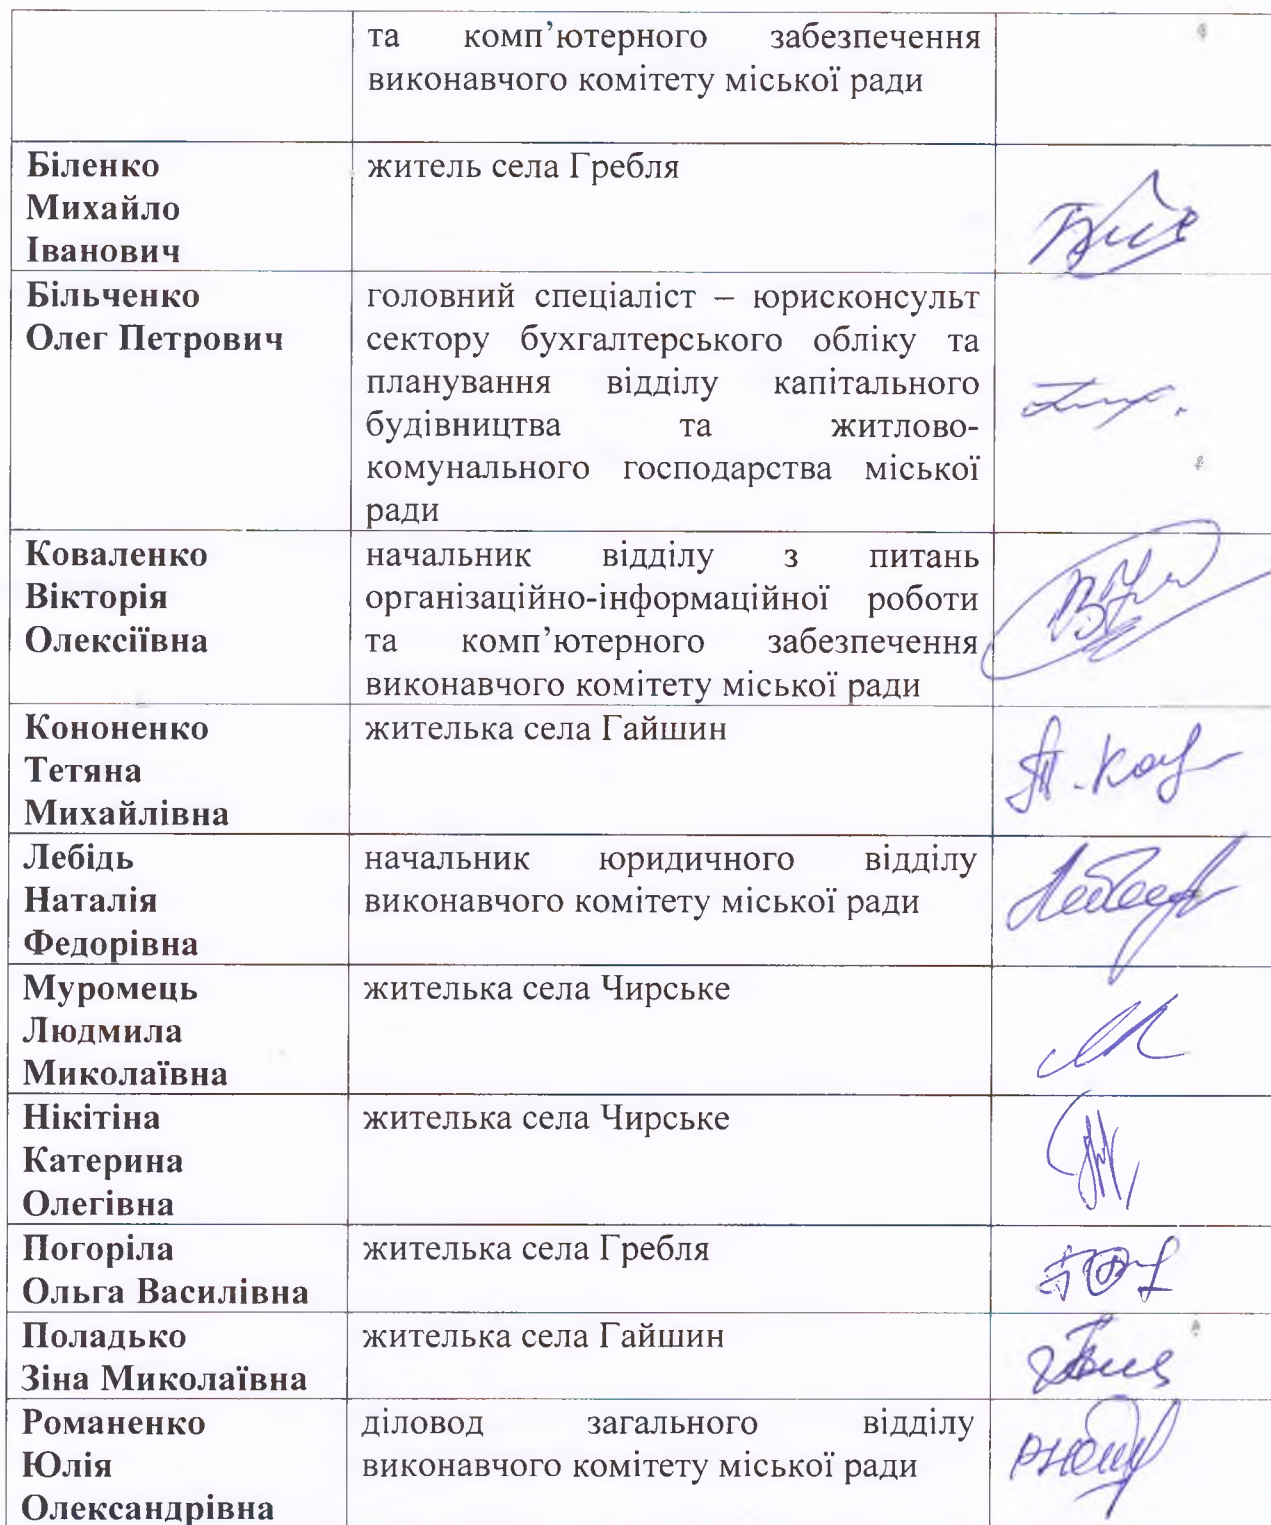 та комп’ютерного забезпечення
виконавчого комітету міської ради
Біленко
Михайло
Іванович
житель села Гребля
Більченко
Олег Петрович
головний спеціаліст – юрисконсульт
сектору бухгалтерського обліку та
планування відділу капітального
будівництва та житлово-
комунального господарства міської
ради
Коваленко
Вікторія
Олексіївна
начальник відділу з питань
організаційно-інформаційної роботи
та комп’ютерного забезпечення
виконавчого комітету міської ради
Кононенко
Тетяна
Михайлівна
жителька села Гайшин
Лебідь
Наталія
Федорівна
начальник юридичного відділу
виконавчого комітету міської ради
Муромець
Людмила
Миколаївна
жителька села Чирське
Нікітіна
Катерина
Олегівна
жителька села Чирське
Погоріла
Ольга Василівна
жителька села Гребля
Поладько
Зіна Миколаївна
жителька села Гайшин
Романенко
Юлія
Олександрівна
діловод загального відділу
виконавчого комітету міської ради